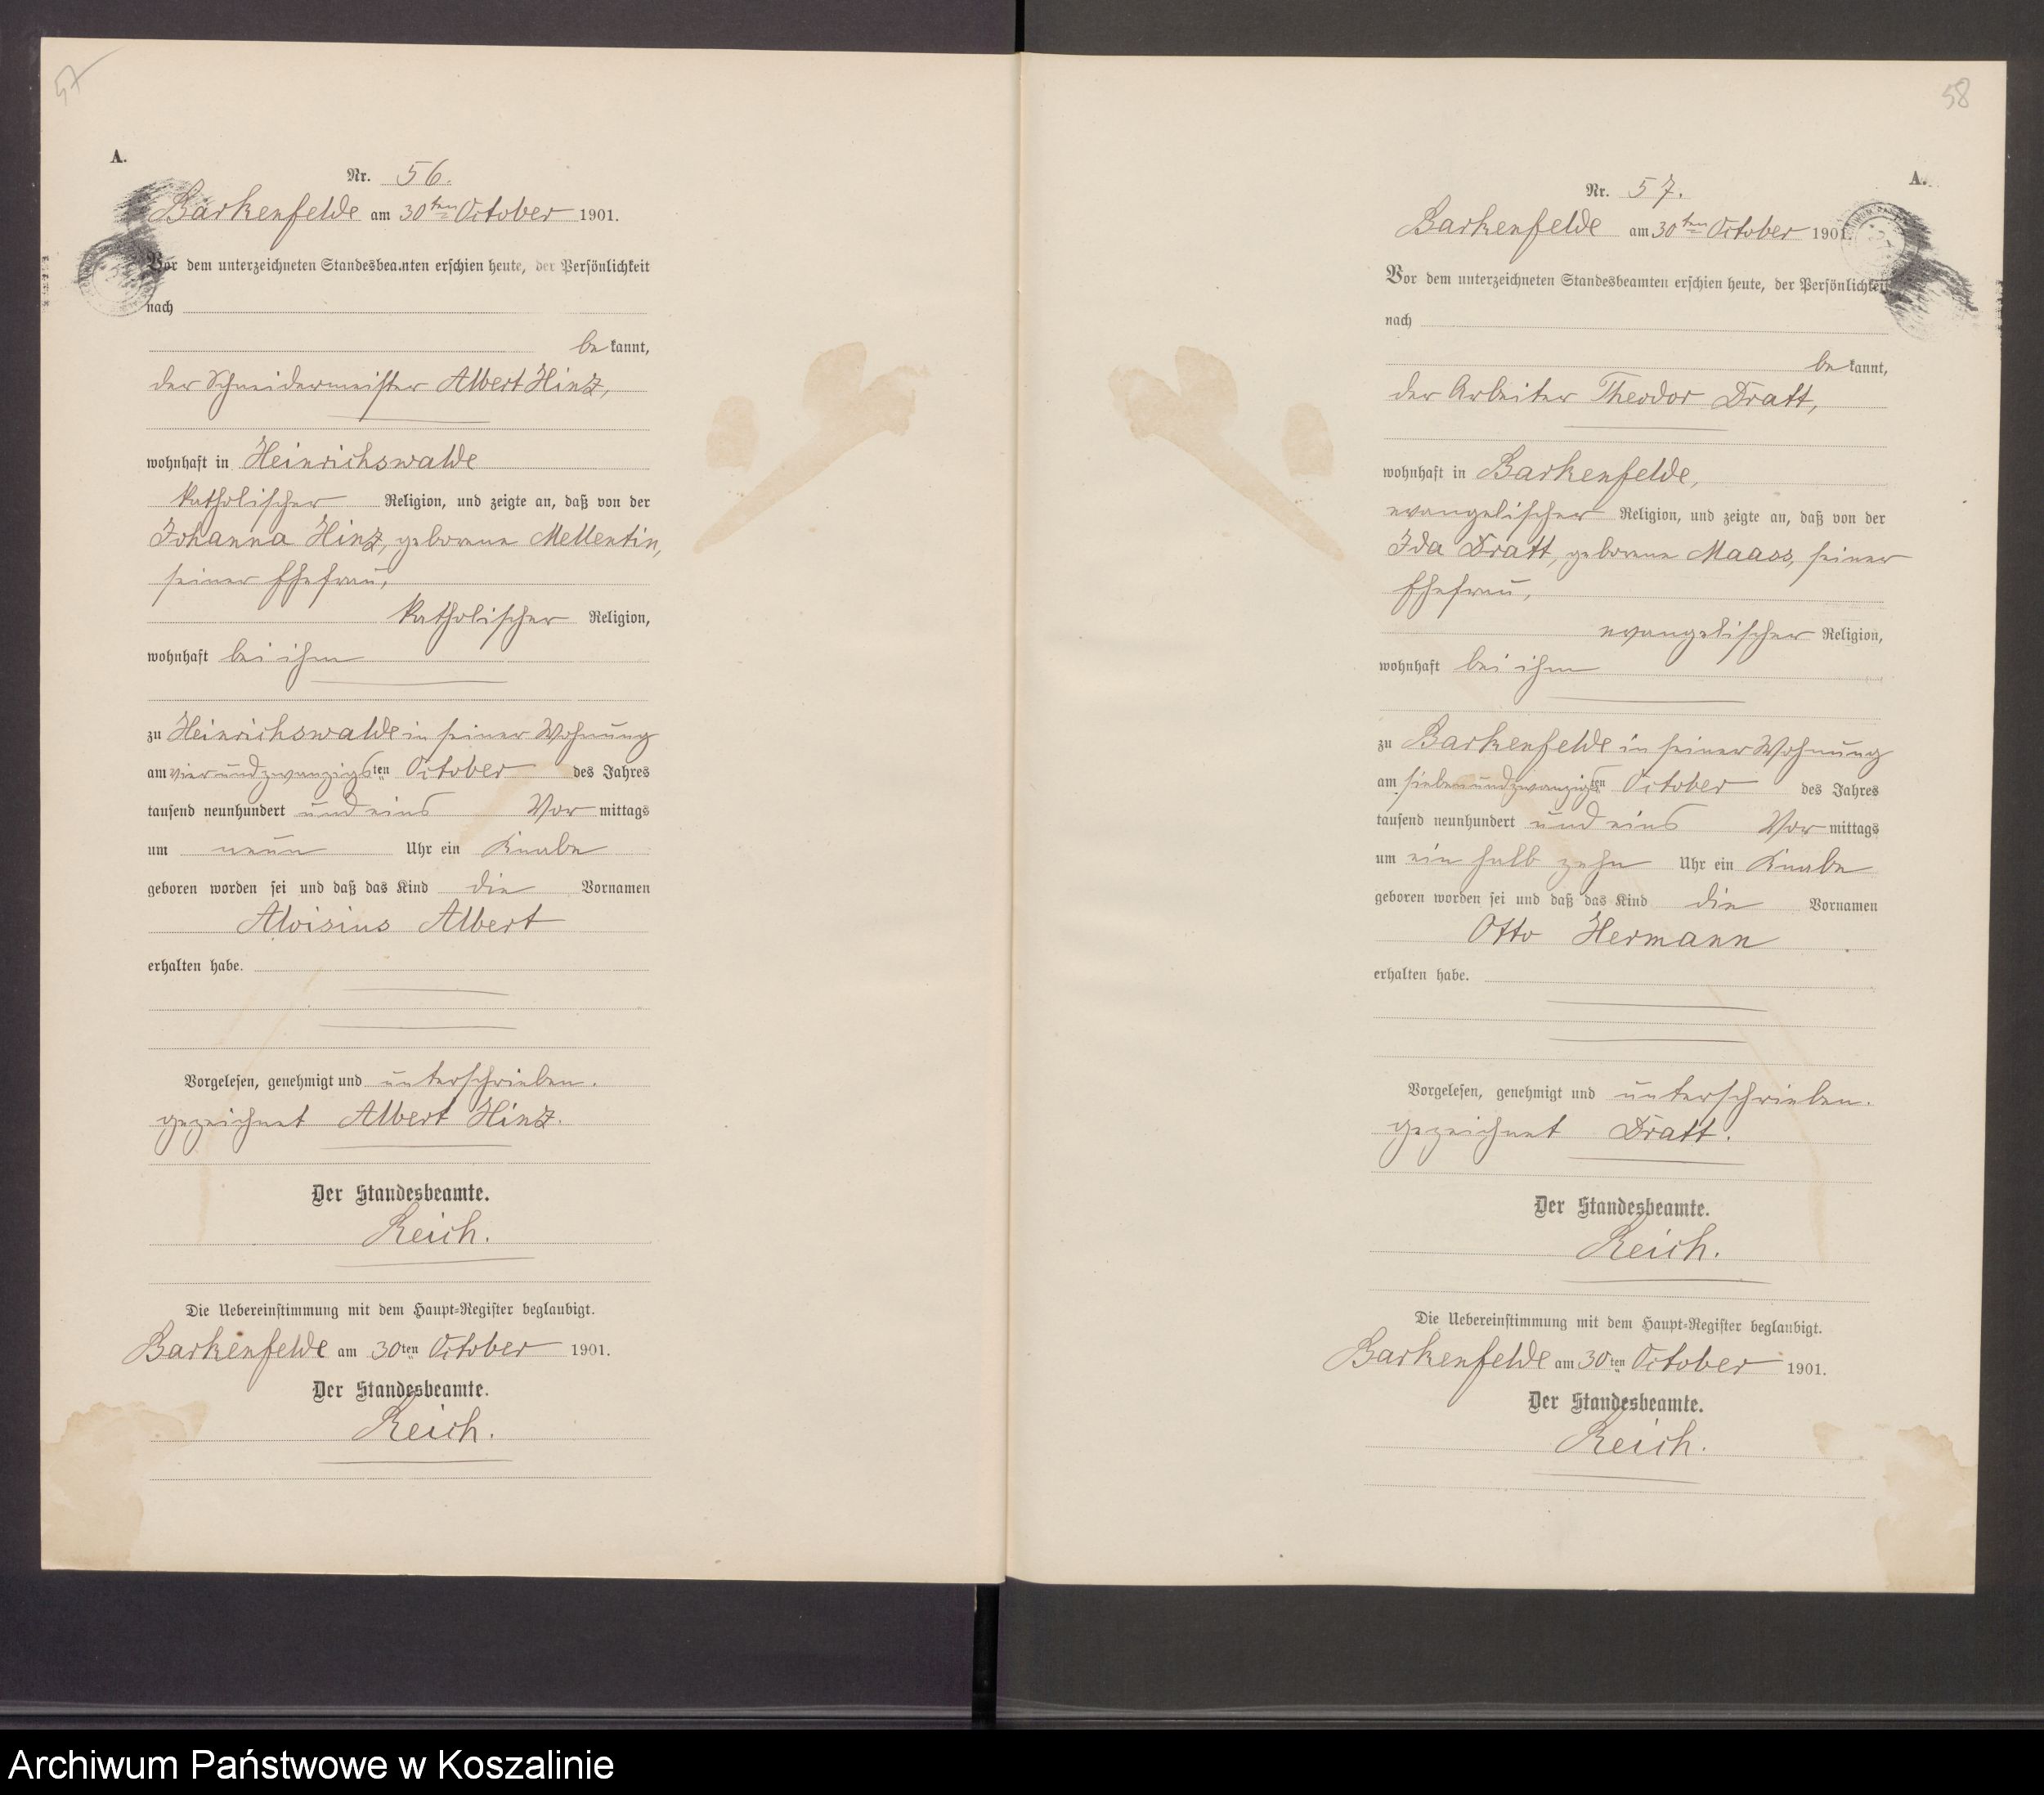 57
A.
Nr. 56.
Barkenfelde am 30ten October 1901.
Vor dem unterzeichneten Standesbeamten erschien heute, der Persönlichkeit
nach
be kannt,
der Schneidermeister Albert Hinz,
wohnhaft in Heinrichswalde
katholischer Religion, und zeigte an, daß von der
Johanna Hinz, geborene Mellentin,
seiner Ehefrau,
katholischer Religion,
wohnhaft bei ihm
zu Heinrichswalde in seiner Wohnung
am vierundzwanzigsten October des Jahres
tausend neunhundert und eins Vor mittags
um neun Uhr ein Knabe
geboren worden sei und daß das Kind die Vornamen
Aloisius Albert
erhalten habe.
Vorgelesen, genehmigt und unterschrieben.
gezeichnet Albert Hinz.
Der Standesbeamte.
Reich.
Die Uebereinstimmung mit dem Haupt-Register beglaubigt.
Barkenfelde am 30ten October 1901.
Der Standesbeamte.
Reich.
58
A.
Nr. 57.
Barkenfelde am 30ten October 1901
Vor dem unterzeichneten Standesbeamten erschien heute, der Persönlichkeit
nach
be kannt,
der Arbeiter Theodor Dratt,
wohnhaft in Barkenfelde,
evangelischer Religion, und zeigte an, daß von der
Ida Dratt, geborene Maass, seiner
Ehefrau,
evangelischer Religion,
wohnhaft bei ihm
zu Barkenfelde in seiner Wohnung
am siebenundzwanzigsten October des Jahres
tausend neunhundert und eins Vor mittags
um ein halb zehn Uhr ein Knabe
geboren worden sei und daß das Kind die Vornamen
Otto Hermann
erhalten habe.
Vorgelesen, genehmigt und unterschrieben.
gezeichnet Dratt.
Der Standesbeamte.
Reich.
Die Uebereinstimmung mit dem Haupt-Register beglaubigt.
Barkenfelde am 30ten October 1901.
Der Standesbeamte.
Reich.
Archiwum Państwowe w Koszalinie